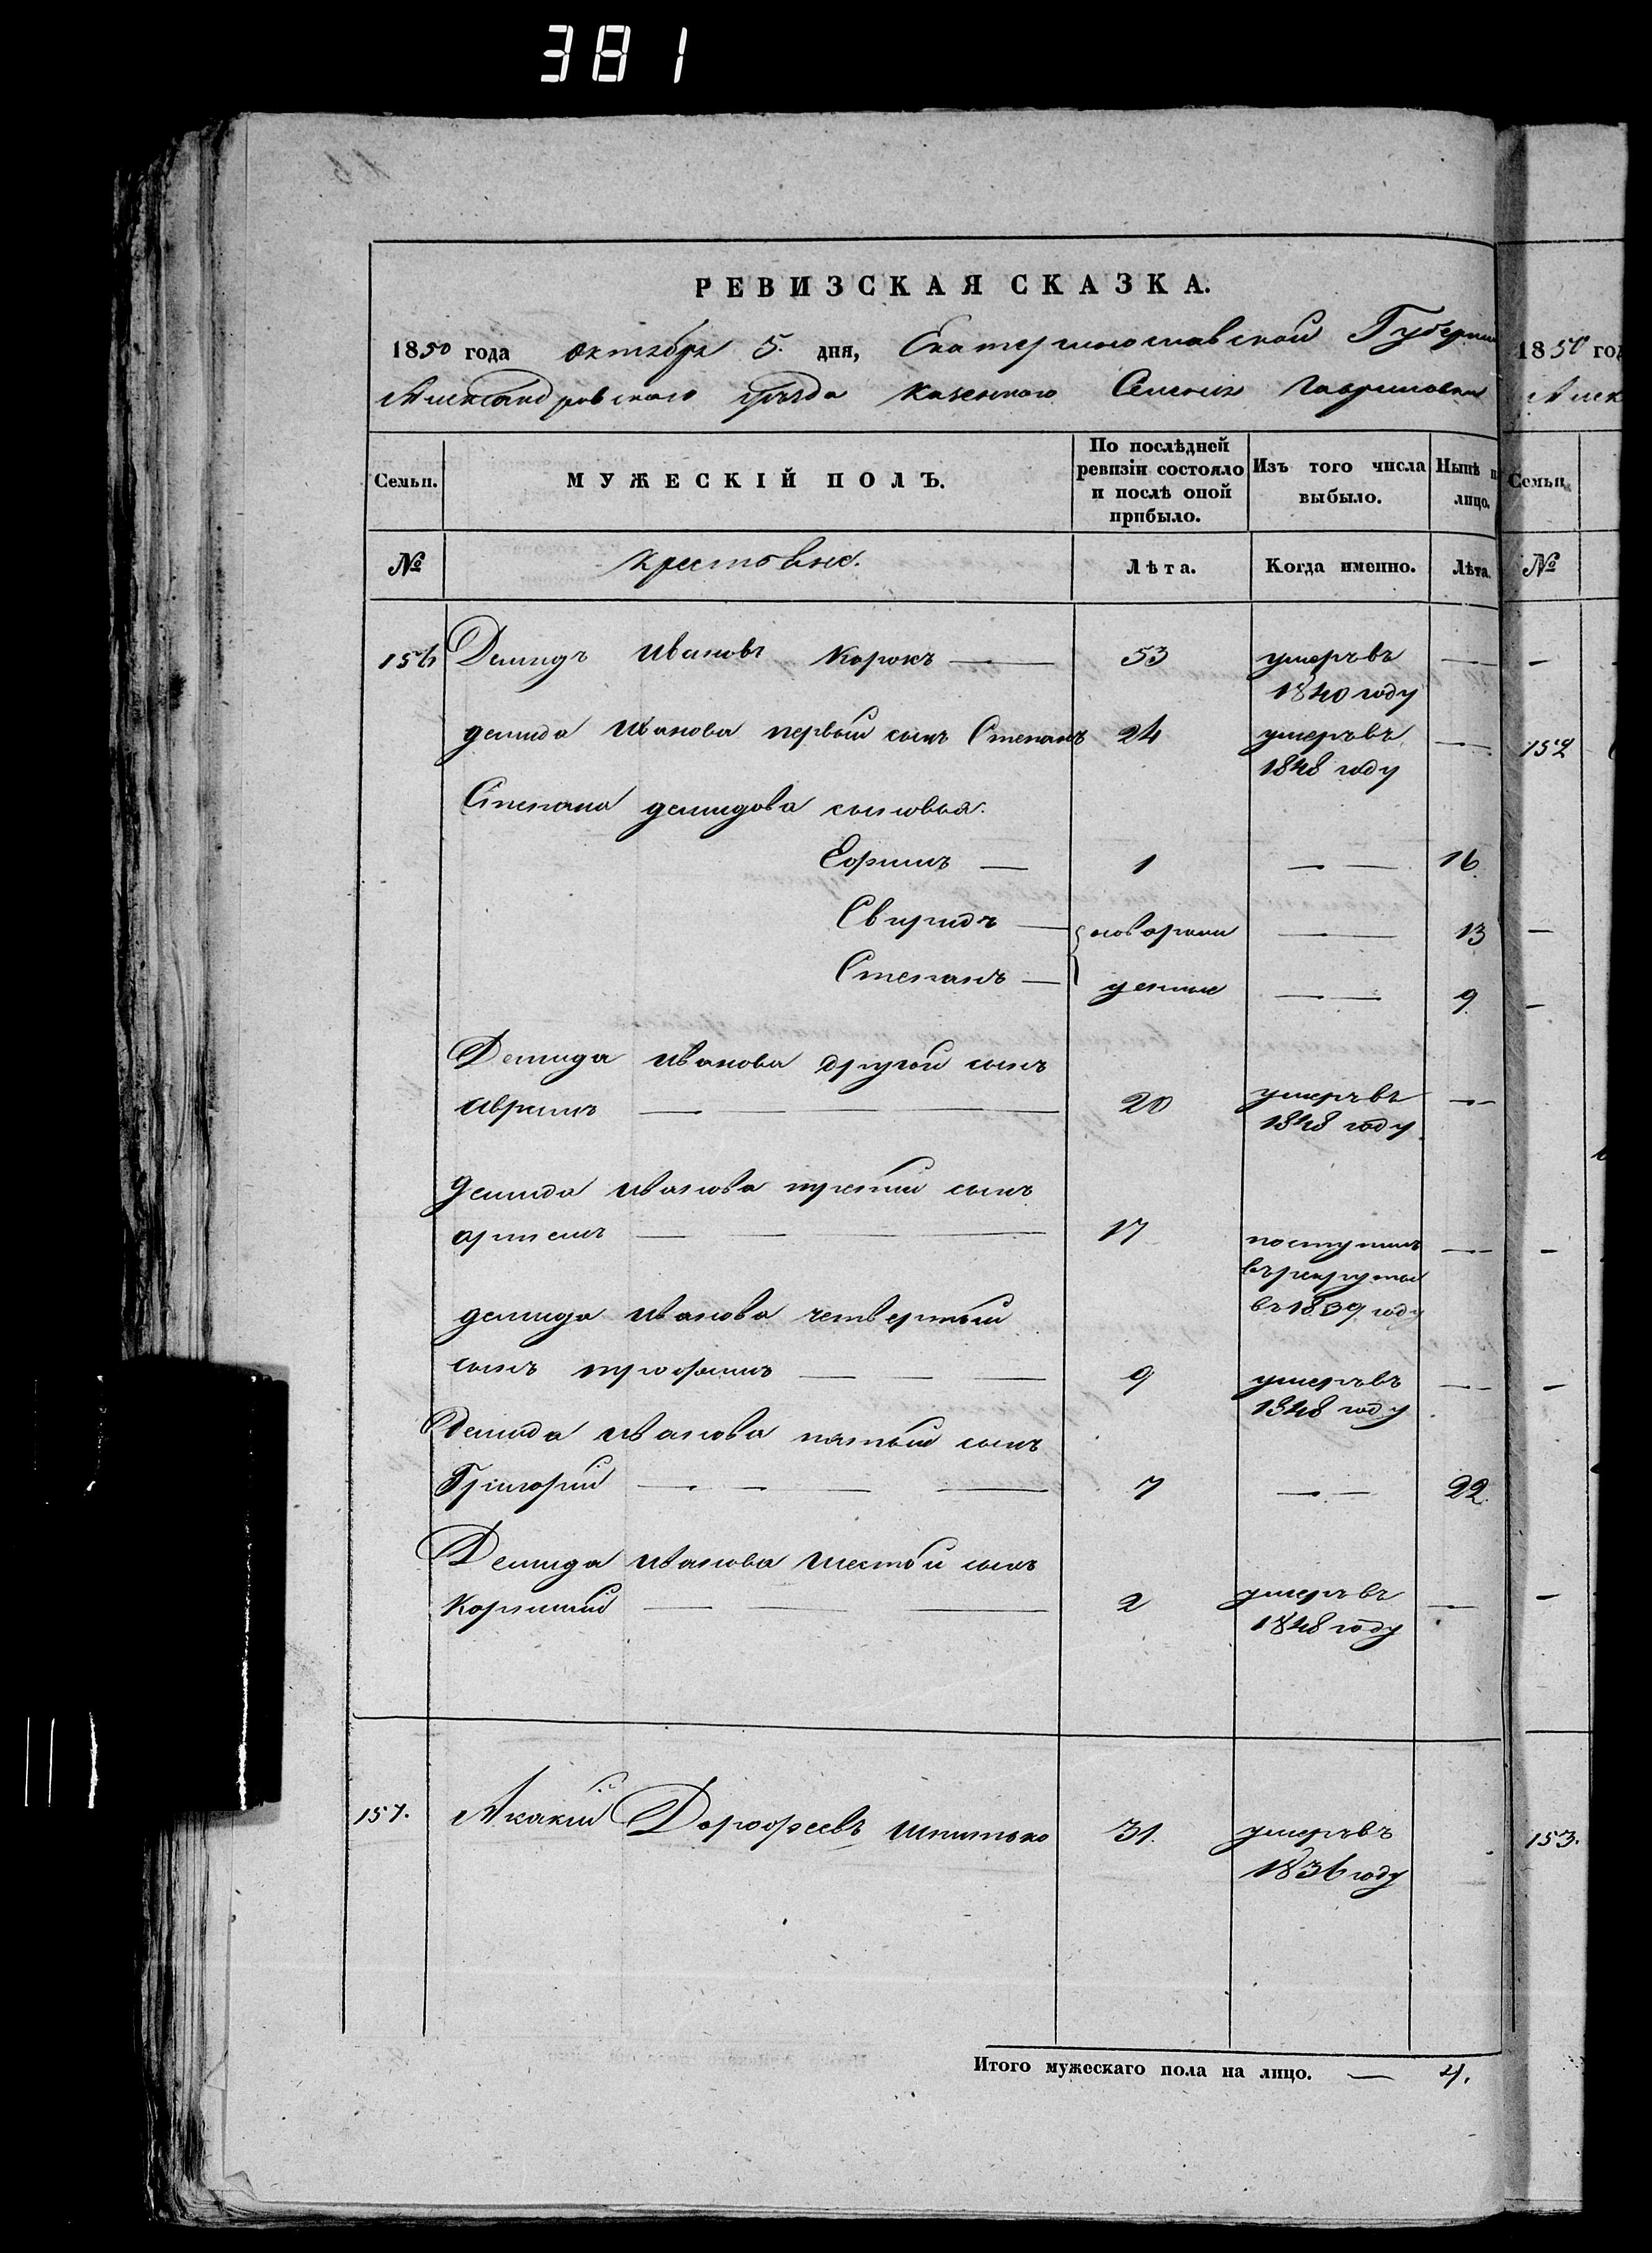 381
РЕВИЗСКАЯ СКАЗКА.
1850 года октября 5. дня, Екатеринославской Губернии
Александровскаго уѣзда казеннаго Селенія Гавриловки
Семьи. МУЖЕСКІЙ ПОЛЪ. По послѣдней ревизіи состояло и послѣ оной прибыло. Изъ того числа выбыло. Нынѣ н лицо.
№ Лѣта. Когда именно. Лѣта.
156 Демидъ Ивановъ Корокъ — 53 умеръ въ 1840 году —
демида Иванова первый сынъ Степанъ 24 умеръ въ 1848 году —
Степана демидова сыновья.
Ефимъ — 1 — — 16.
Свиридъ — новорож — — 13
Степанъ — денные — — 9
Демида Иванова другой сынъ
Аврамъ — — — — 20 умеръ въ 1848 году —
демида Иванова третий сынъ
артемъ — — — — 17 поступилъ въ рекруты въ 1839 году —
демида Иванова четвертый
сынъ трофимъ — — — 9 умеръ въ 1848 году —
Демида Иванова пятый сынъ
Григорий — — — — 7 — — 22.
Демида Иванова шестый сынъ
Корнилий — — — 2 умеръ въ 1848 году —
157. Акакий Дорофеевъ Шпитько 31. умеръ въ 1836 году
Итого мужескаго пола на лицо. — 4.
1850 год
Алек
Семьи.
№
152
153.